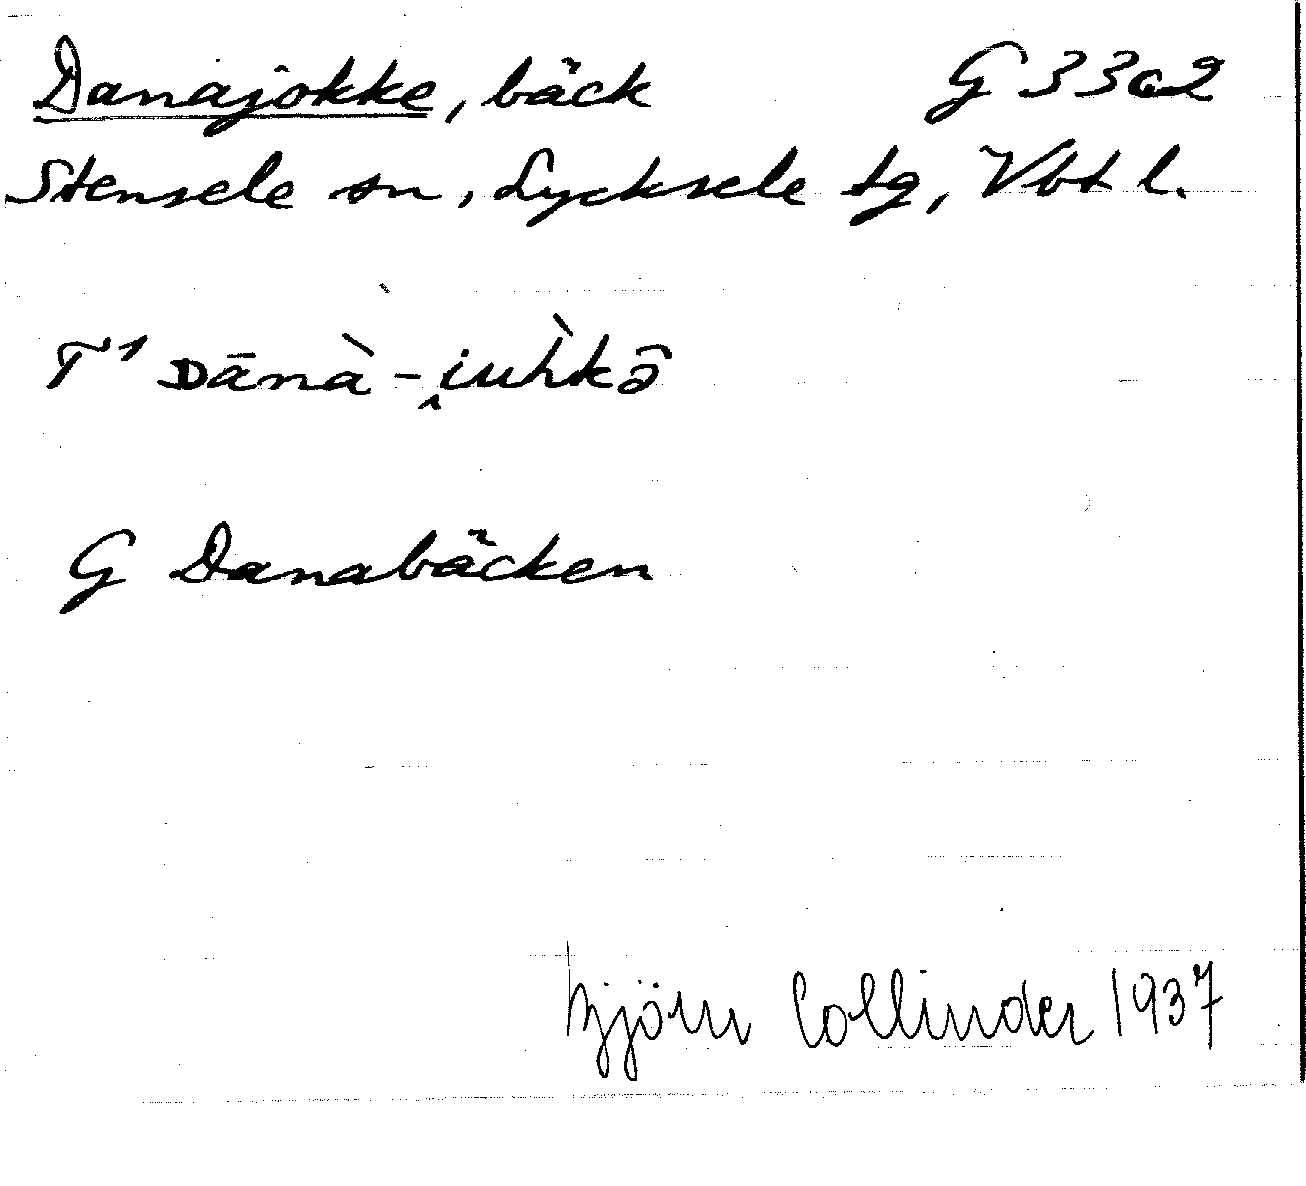 Danajokke, bäck G 33c2
Stensele sn, Lycksele tg, Vbt l.
T¹ ᴅānà-i̯uh̀kə̑
G Danabäcken
Björn Collinder 1937